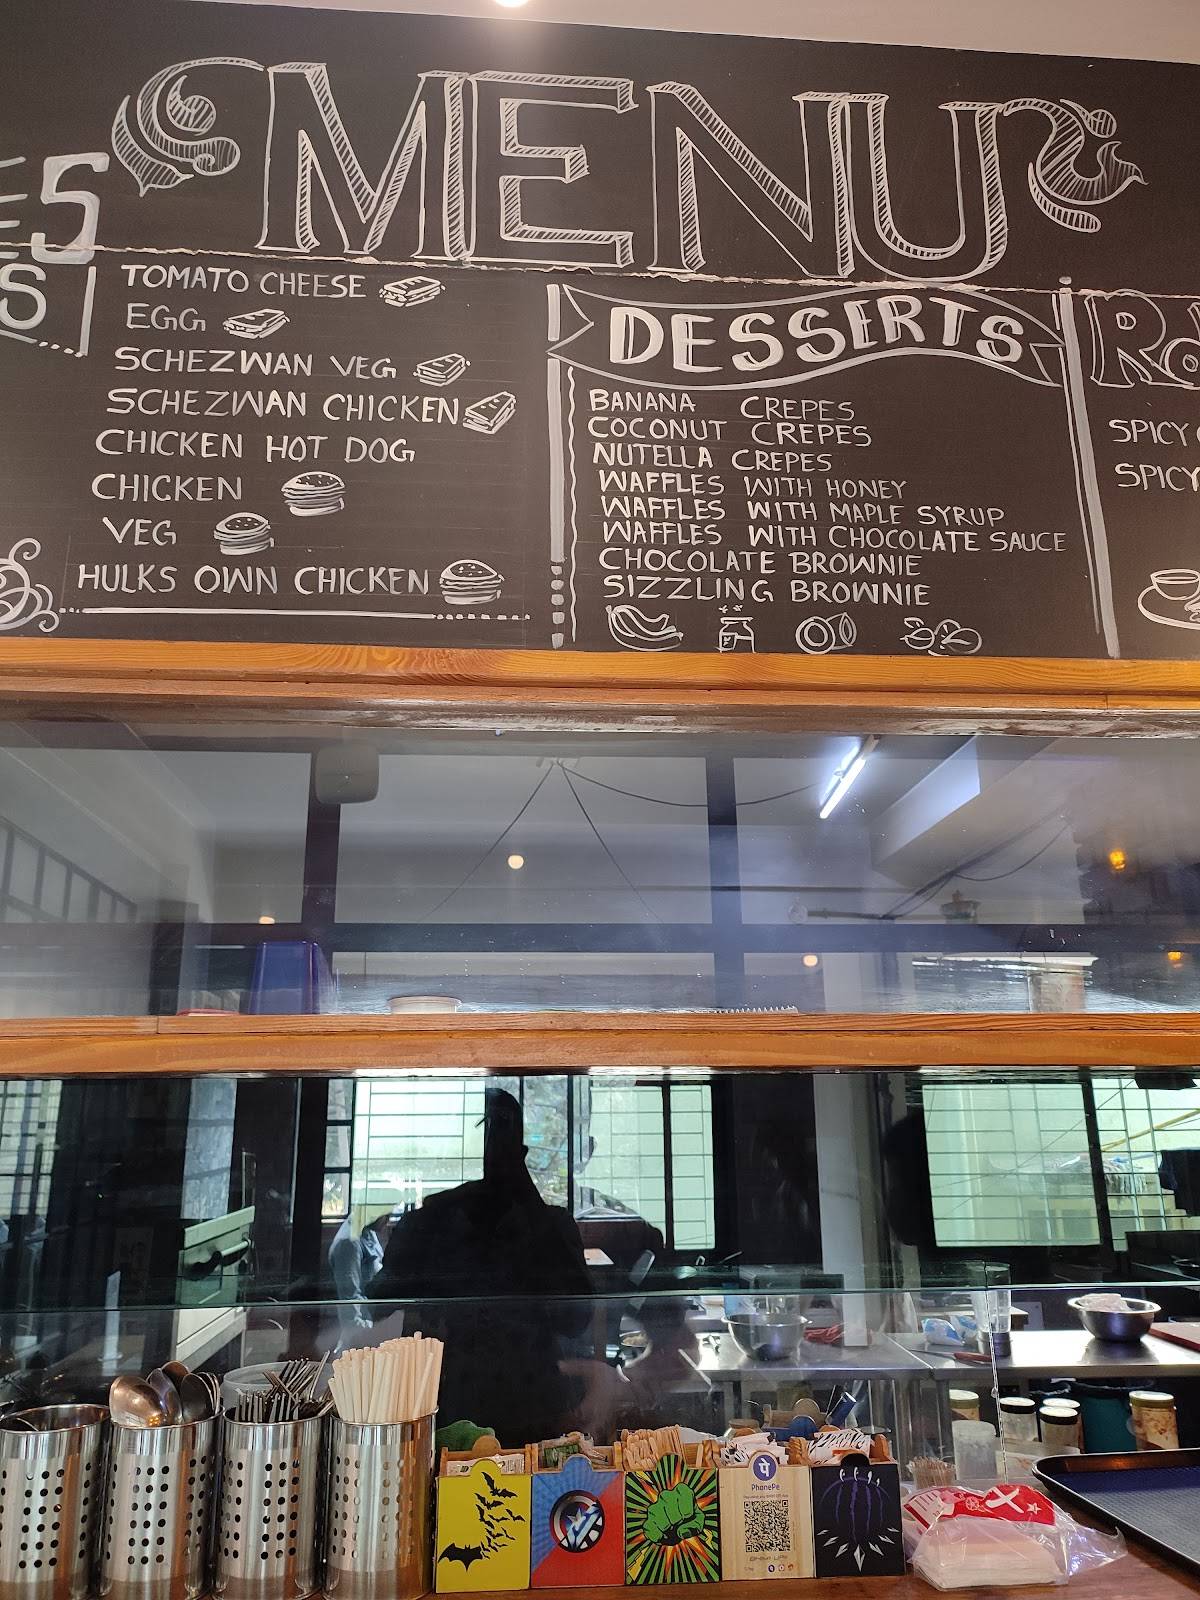 MENU
ES
S
TOMATO CHEESE
EGG
SCHEZWAN VEG
SCHEZWAN CHICKEN
CHICKEN HOT DOG
CHICKEN
VEG
HULKS OWN CHICKEN
DESSERTS
BANANA CREPES
COCONUT CREPES
NUTELLA CREPES
WAFFLES WITH HONEY
WAFFLES WITH MAPLE SYRUP
WAFFLES WITH CHOCOLATE SAUCE
CHOCOLATE BROWNIE
SIZZLING BROWNIE
Ro
SPICY
SPICY
PhonePe